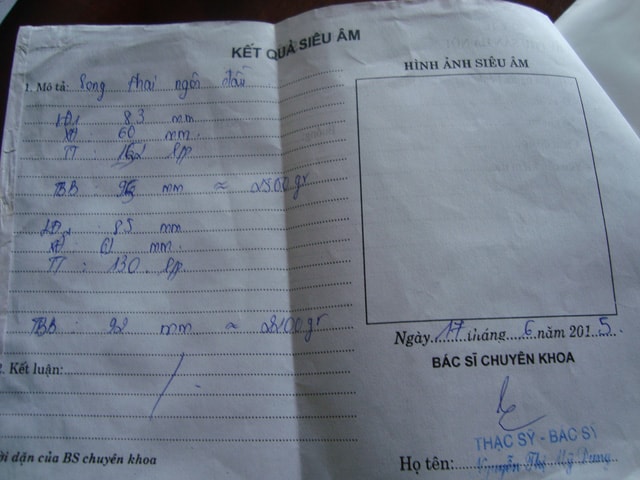 KẾT QUẢ SIÊU ÂM
1. Mô tả: Song thai ngôn đầu
LĐ1 : 83 mm
: 60 mm.
TT : 152 l/p
TBB : mm ≈ 2500 gr
LĐ : 85 mm
: 61 mm.
TT : 130 l/p
TBB : 92 mm ≈ 2400 gr
2. Kết luận:
ời dặn của BS chuyên khoa
HÌNH ẢNH SIÊU ÂM
Ngày 17 tháng 6 năm 2015.
BÁC SĨ CHUYÊN KHOA
THẠC SỸ - BÁC SỸ
Họ tên: Nguyễn Thị Mỹ Dung